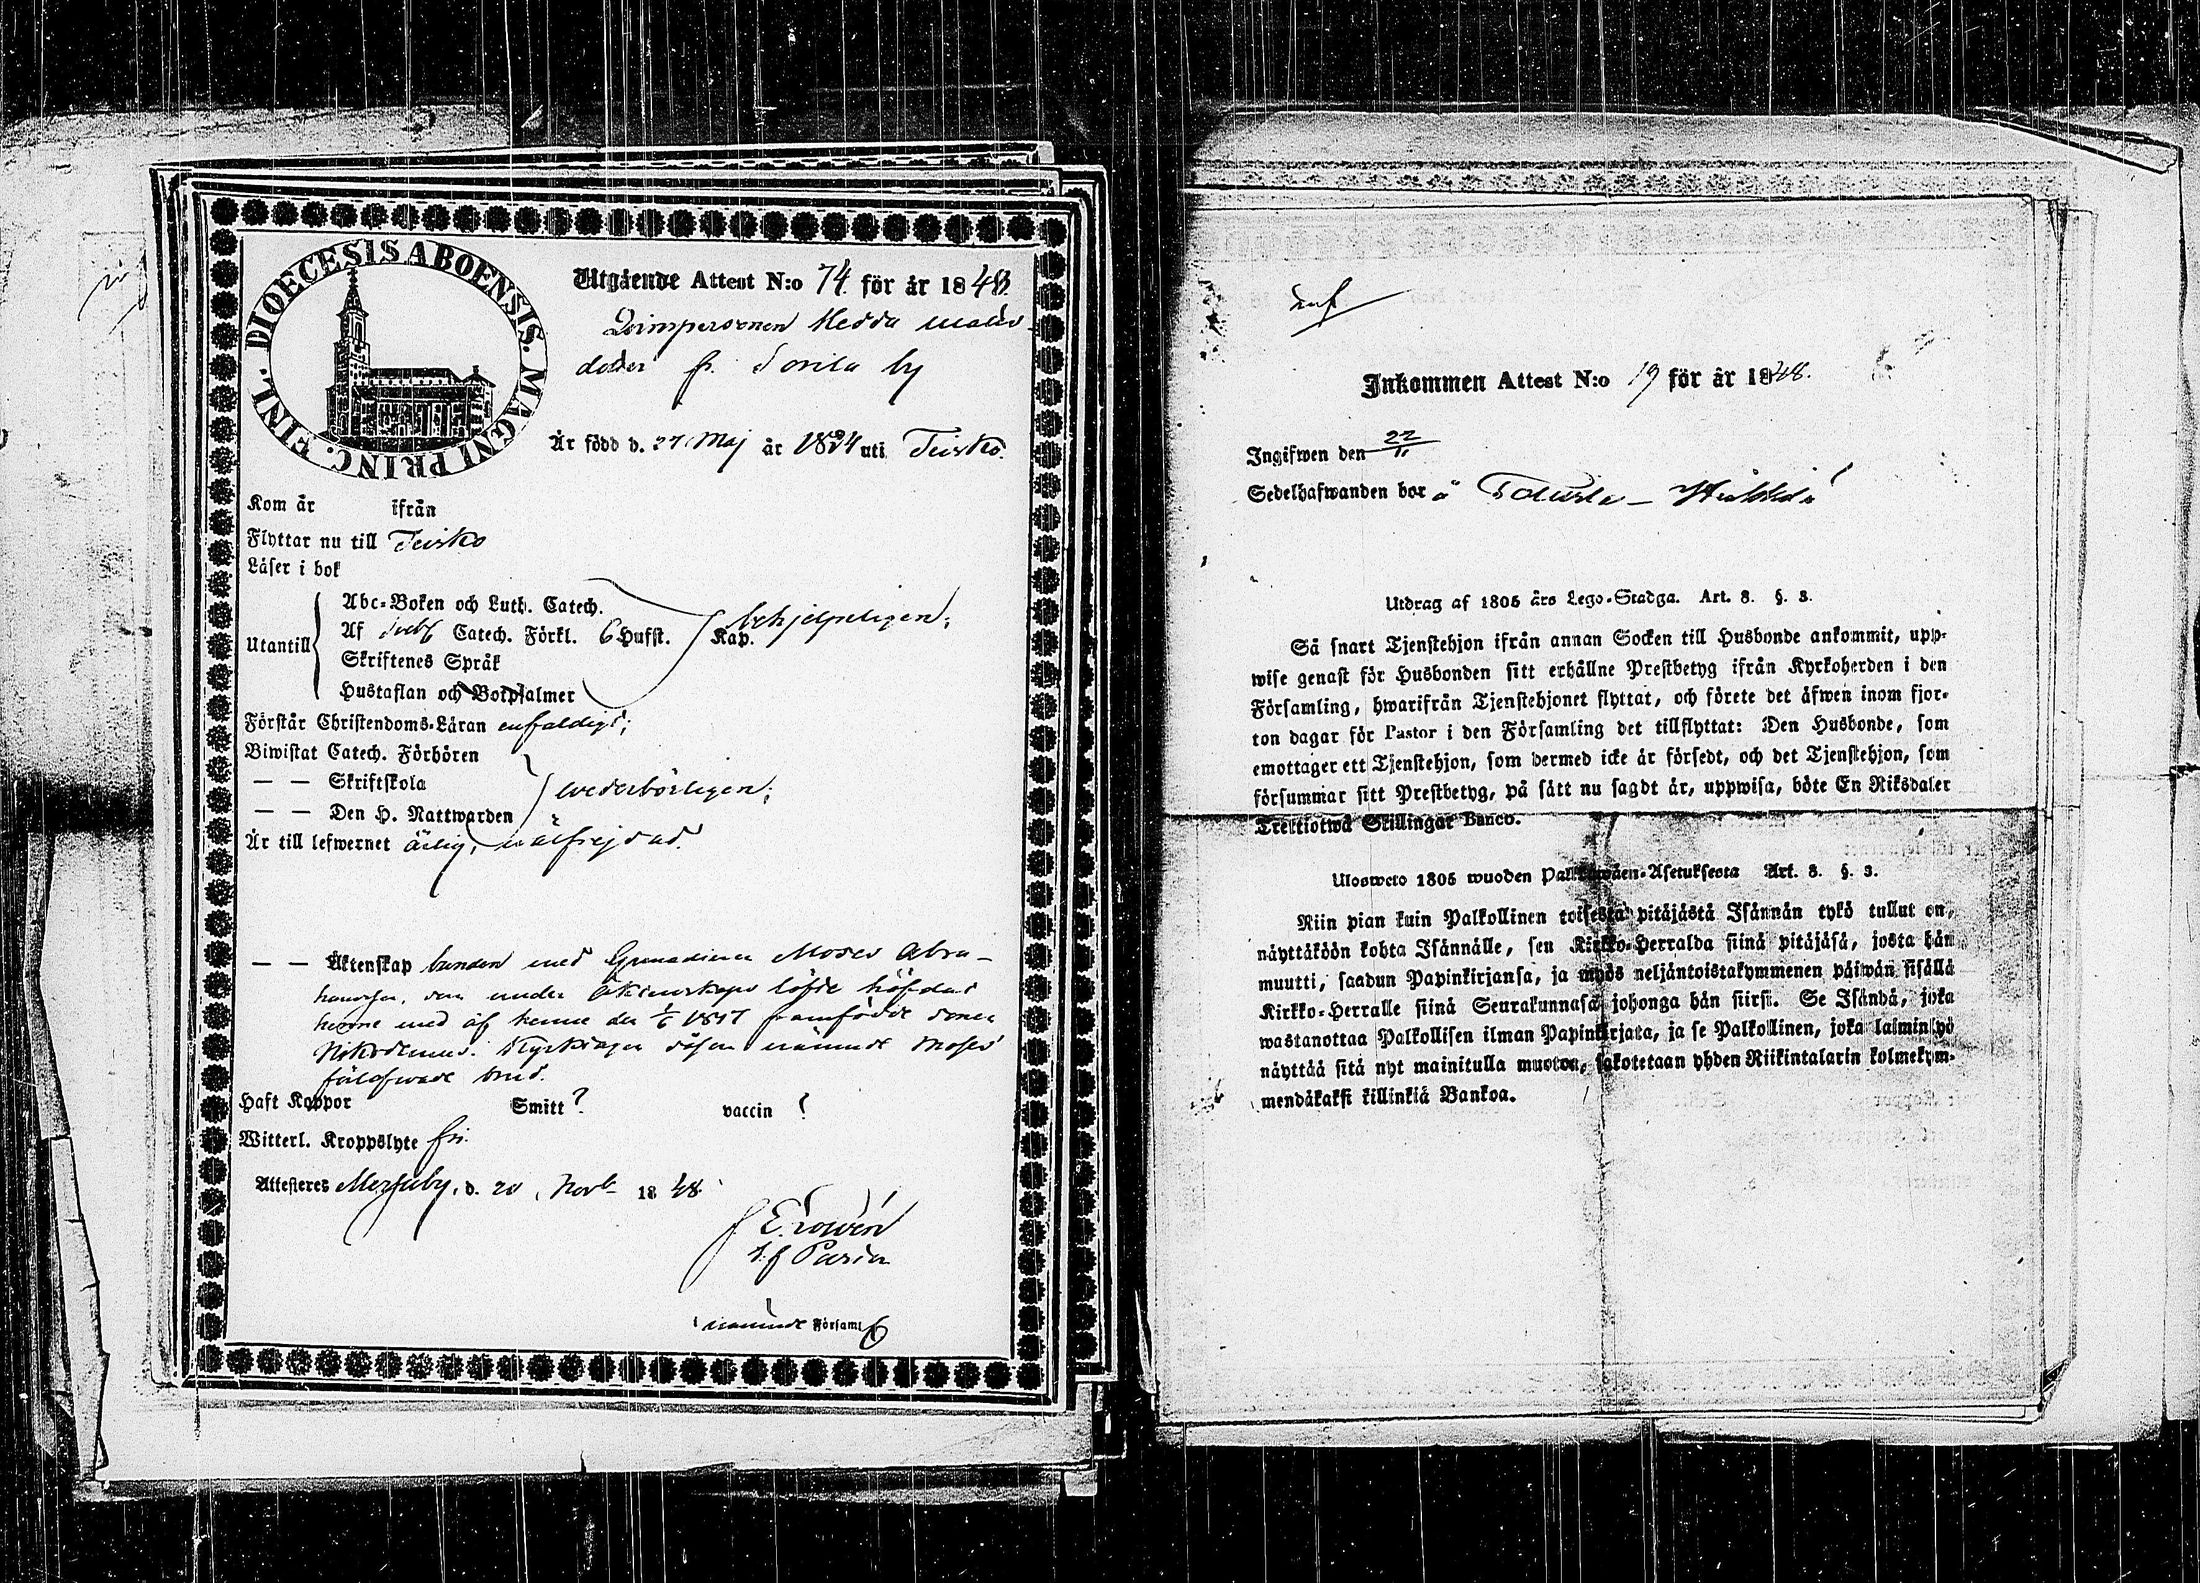 DIOECESIS ABOENSIS. MAGNI PRINC. FINL.
Utgående Attest N:o 74. för år 1848.
Qvinspersonen Hedda Matts-
dotter fr. Sorila by
Är född d. 27 Maj år 1824 uti Teisko.
Kom år ifrån
Flyttar nu till Teisko
Läser i bok
Utantill
Abc-Boken och Luth. Catech.
Af Catech. Förkl. 6 Hufst. Kap. behjelpeligen;
Skriftenes Språk
Hustaflan och Botpsalmer
Förstår Christendoms-Läran enfaldigt;
Biwistat Catech. Förhören
— — Skriftskola wederbörligen;
— — Den H. Nattwarden
Är till lefwernet ärlig, wälfrejdad.
— — Äktenskap bunden med Grenadieren Moses Abra-
hamsson, som under äktenskaps löfte häfdat
henne med af henne den 1/6 1847 framfödde sonen
Nikodemus. Kyrktagen såsom nämnde Moses
fästade brud.
Haft Koppor Smitt? vaccin?
Witterl. Kroppslyte fri.
Attesteres Messuby, d. 20 Novb. 1848.
E. Lowén
nämnde Församl
Inkommen Attest N:o 19 för år 1848.
Ingifwen den 22/11
Sedelhafwanden bor å
Utdrag af 1805 års Lego-Stadga. Art. 8. §. 3.
Så snart Tjenstehjon ifrån annan Socken till Husbonde ankommit, upp-
wise genast för Husbonden sitt erhållne Prestbetyg ifrån Kyrkoherden i den
Församling, hwarifrån Tjenstehjonet flyttat, och förete det äfwen inom fjor-
ton dagar för Pastor i den Församling det tillflyttat: Den Husbonde, som
emottager ett Tjenstehjon, som dermed icke är försedt, och det Tjenstehjon, som
försummar sitt Prestbetyg, på sätt nu sagdt är, uppwisa, böte En Riksdaler
Trettiotwå Skillingar Banco.
Ulosweto 1805 wuoden Palkkawäen-Asetuksesta Art. 8. §. 3.
Niin pian kuin Palkollinen toisesta pitäjästä Isännän tykö tullut on,
näyttäköön kohta Isännälle, sen Kirkko-Herralda siinä pitäjäsä, josta hän
muutti, saadun Papinkirjansa, ja myös neljäntoistakymmenen päiwän sisällä
Kirkko-Herralle siinä Seurakunnasa johonga hän siirsi. Se Isändä, joka
wastanottaa Palkollisen ilman Papinkirjata, ja se Palkollinen, joka laiminlyö
näyttää sitä nyt mainitulla muoton, sakotetaan yhden Riikintalarin kolmekym-
mendäkaksi killinkiä Bankoa.